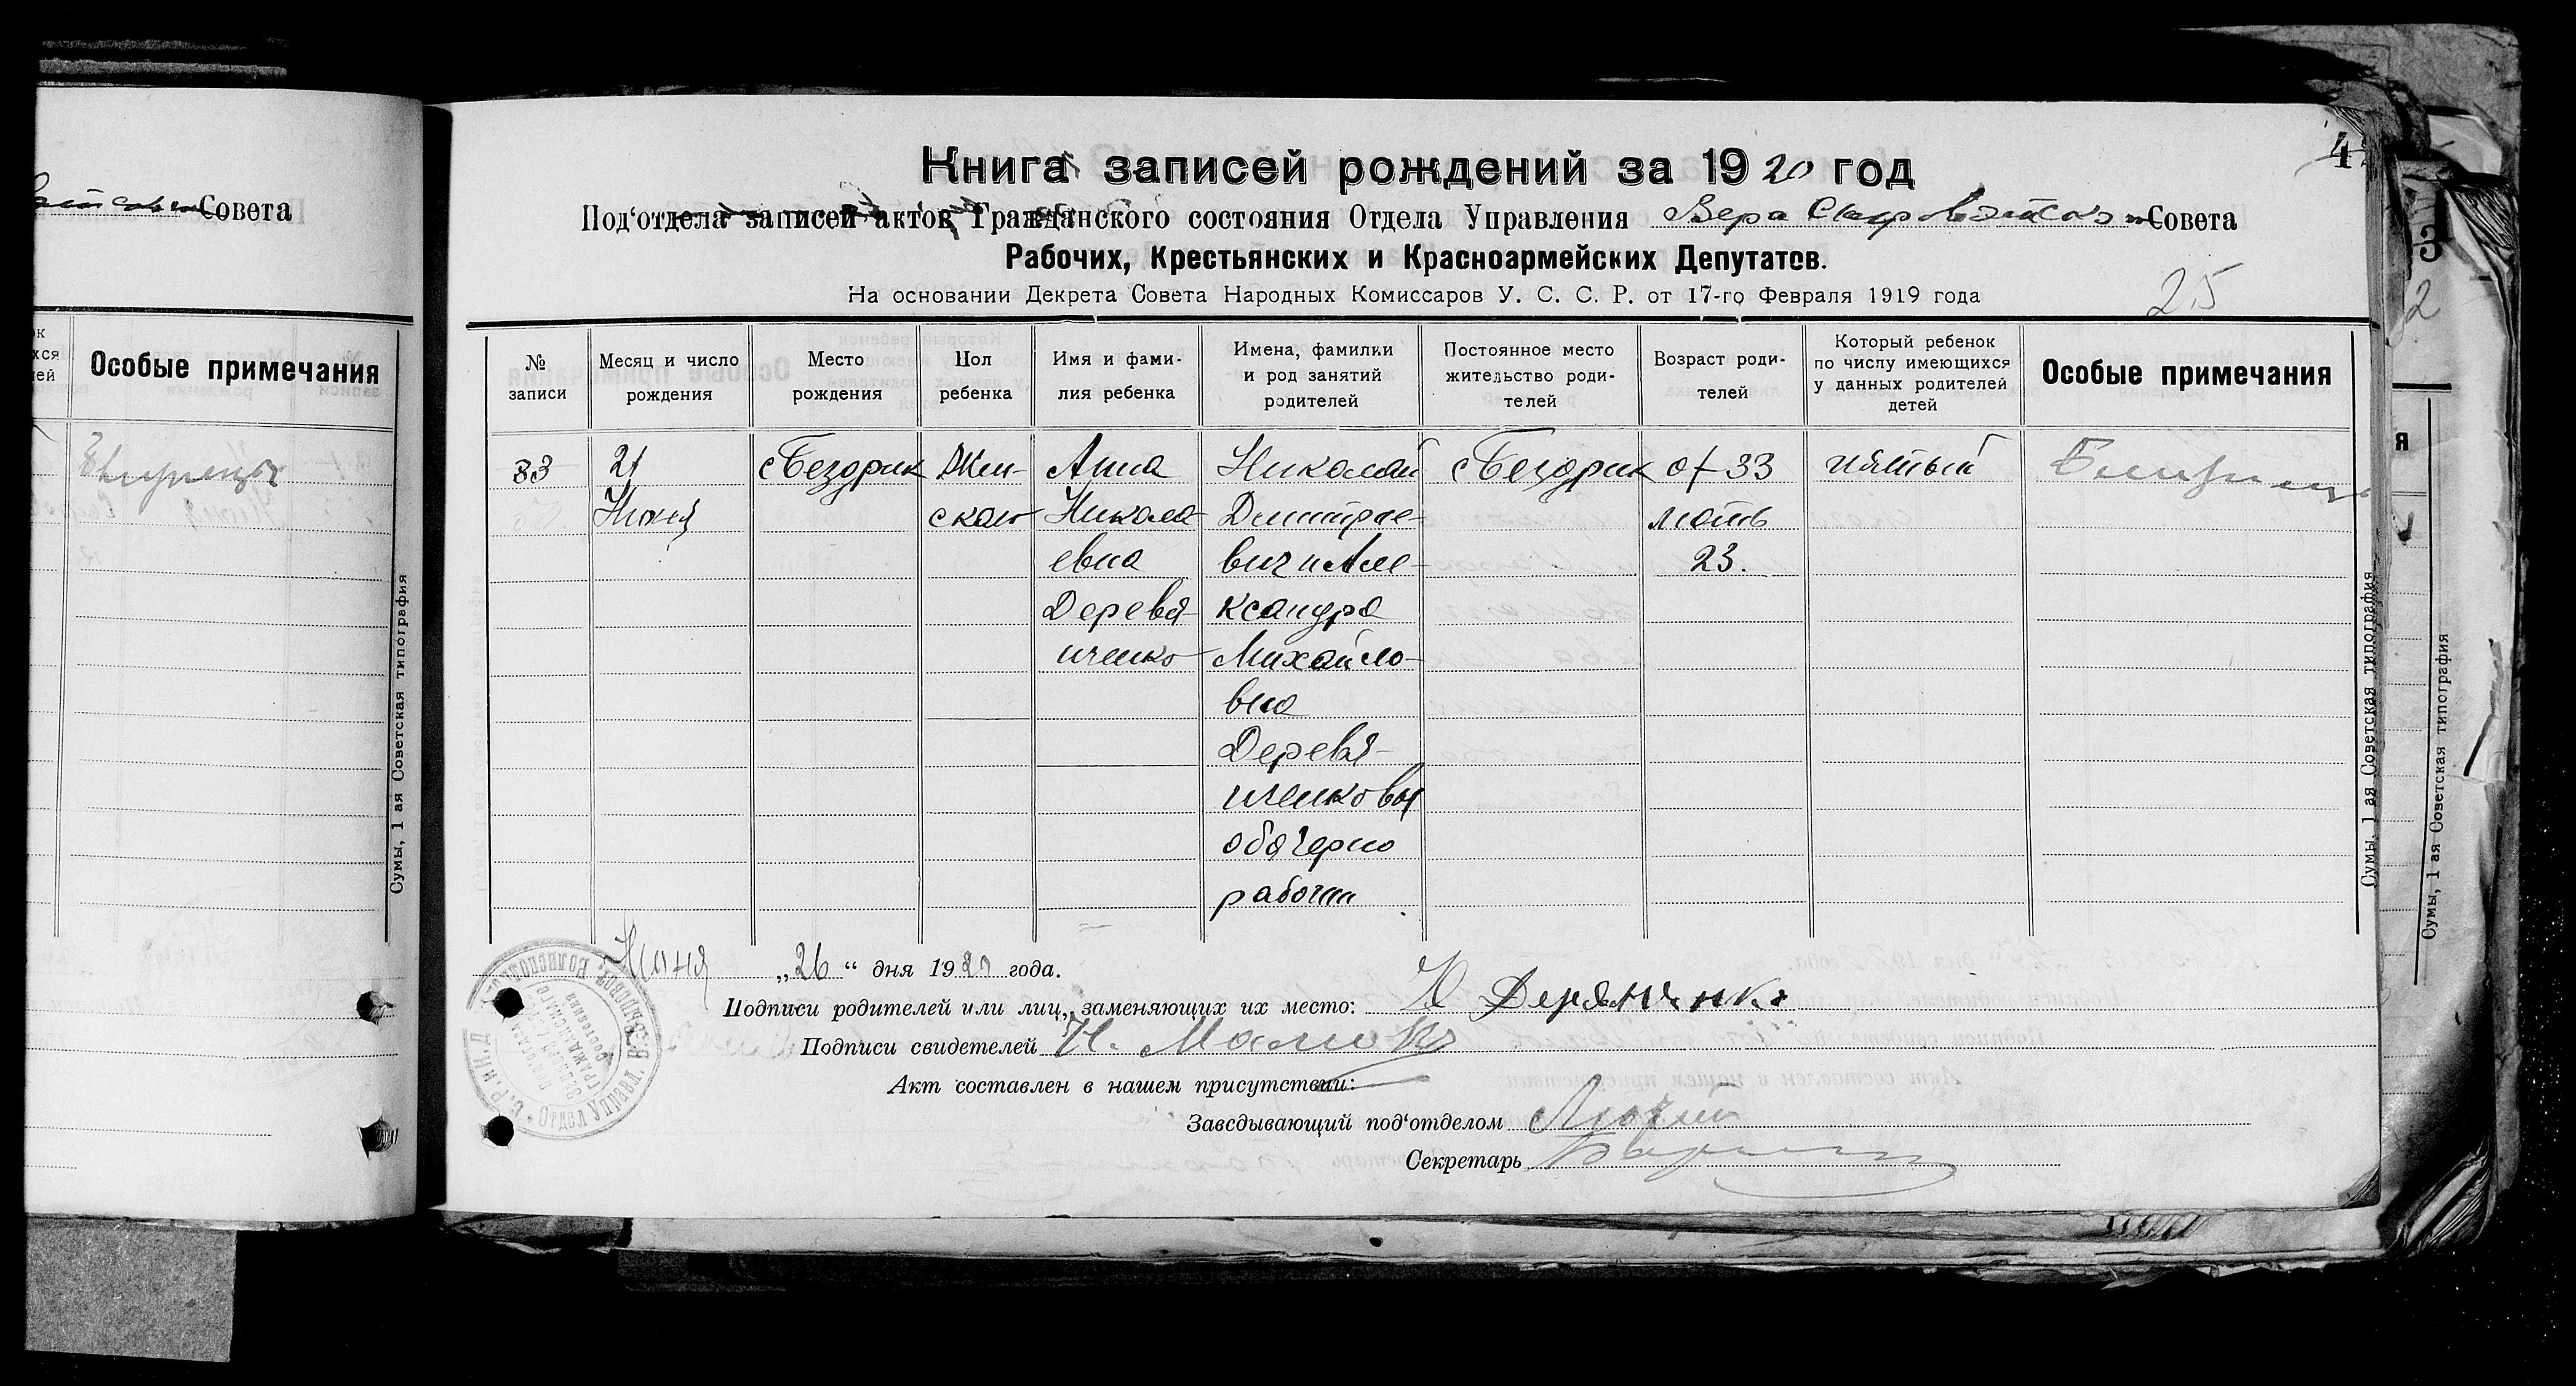 Совета
Особые примечания
Сумы, 1 ая Советская типография
4
Книга записей рождений за 1920 год
Под'отдела записей актов Гражданского состояния Отдела Управления Совета
Рабочих, Крестьянских и Красноармейских Депутатов.
На основании Декрета Совета Народных Комиссаров У. С. С. Р. от 17-го Февраля 1919 года
25
№ записи
Месяц и число рождения
Место рождения
Пол ребенка
Имя и фамилия ребенка
Имена, фамилии и род занятий родителей
Постоянное место жительство родителей
Возраст родителей
Который ребенок по числу имеющихся у данных родителей детей
Особые примечания
33
21
Июня
с Бездрик
Жен-
ского
Анна
Никола-
евна
Деревя-
нченко
Николай
Дмитрие-
вич и Але-
ксандра
Михайло-
вна
Деревя-
нченковы
оба черно
рабочии
с Бездрик
от 33
мать
23.
пятый
Сумы, 1 ая Советская типография
Июня „26“ дня 1920 года.
Подписи родителей или лиц, заменяющих их место:
Подписи свидетелей Н.
Акт составлен в нашем присутствии:
Заведывающий под'отделом
Секретарь
3
2
я
Сумы, 1 ая Советская типография